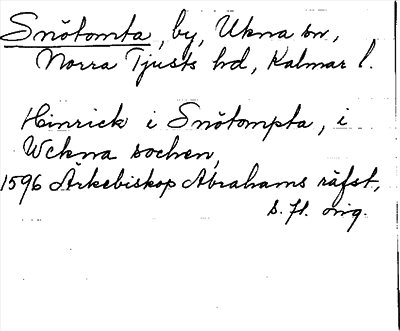 Snötomta, by, Ukna sn,
Norra Tjusts hd, Kalmar l.
Hinrick i Snötompta, i
Wckna sochen,
1596 Ärkebiskop Abrahams räfst,
s. 71. orig.